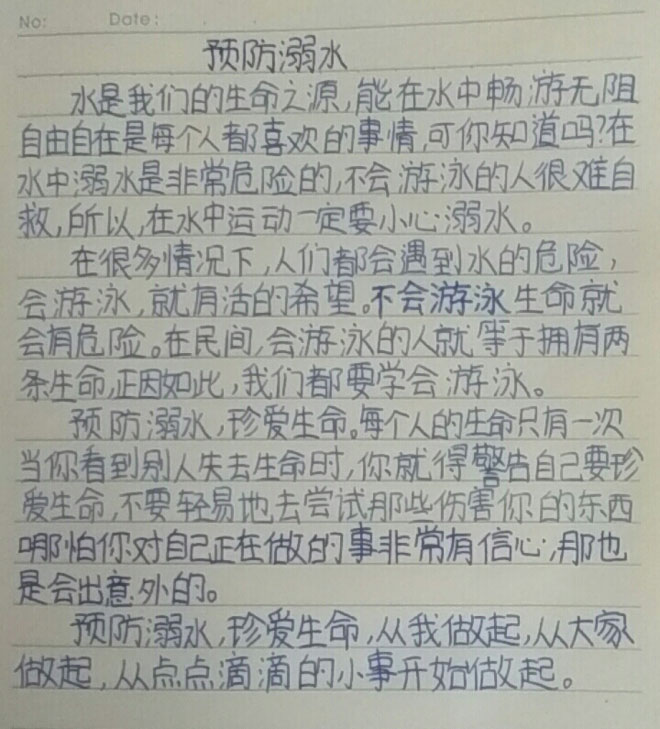 No:    Date:
预防溺水
水是我们的生命之源,能在水中畅游无阻
自由自在是每个人都喜欢的事情,可你知道吗?在
水中溺水是非常危险的,不会游泳的人很难自
救,所以,在水中运动一定要小心溺水。
在很多情况下,人们都会遇到水的危险,
会游泳,就有活的希望。不会游泳生命就
会有危险。在民间,会游泳的人就等于拥有两
条生命,正因如此,我们都要学会游泳。
预防溺水,珍爱生命。每个人的生命只有一次
当你看到别人失去生命时,你就得警告自己要珍
爱生命,不要轻易地去尝试那些伤害你的东西
哪怕你对自己正在做的事非常有信心,那也
是会出意外的。
预防溺水,珍爱生命,从我做起,从大家
做起,从点点滴滴的小事开始做起。